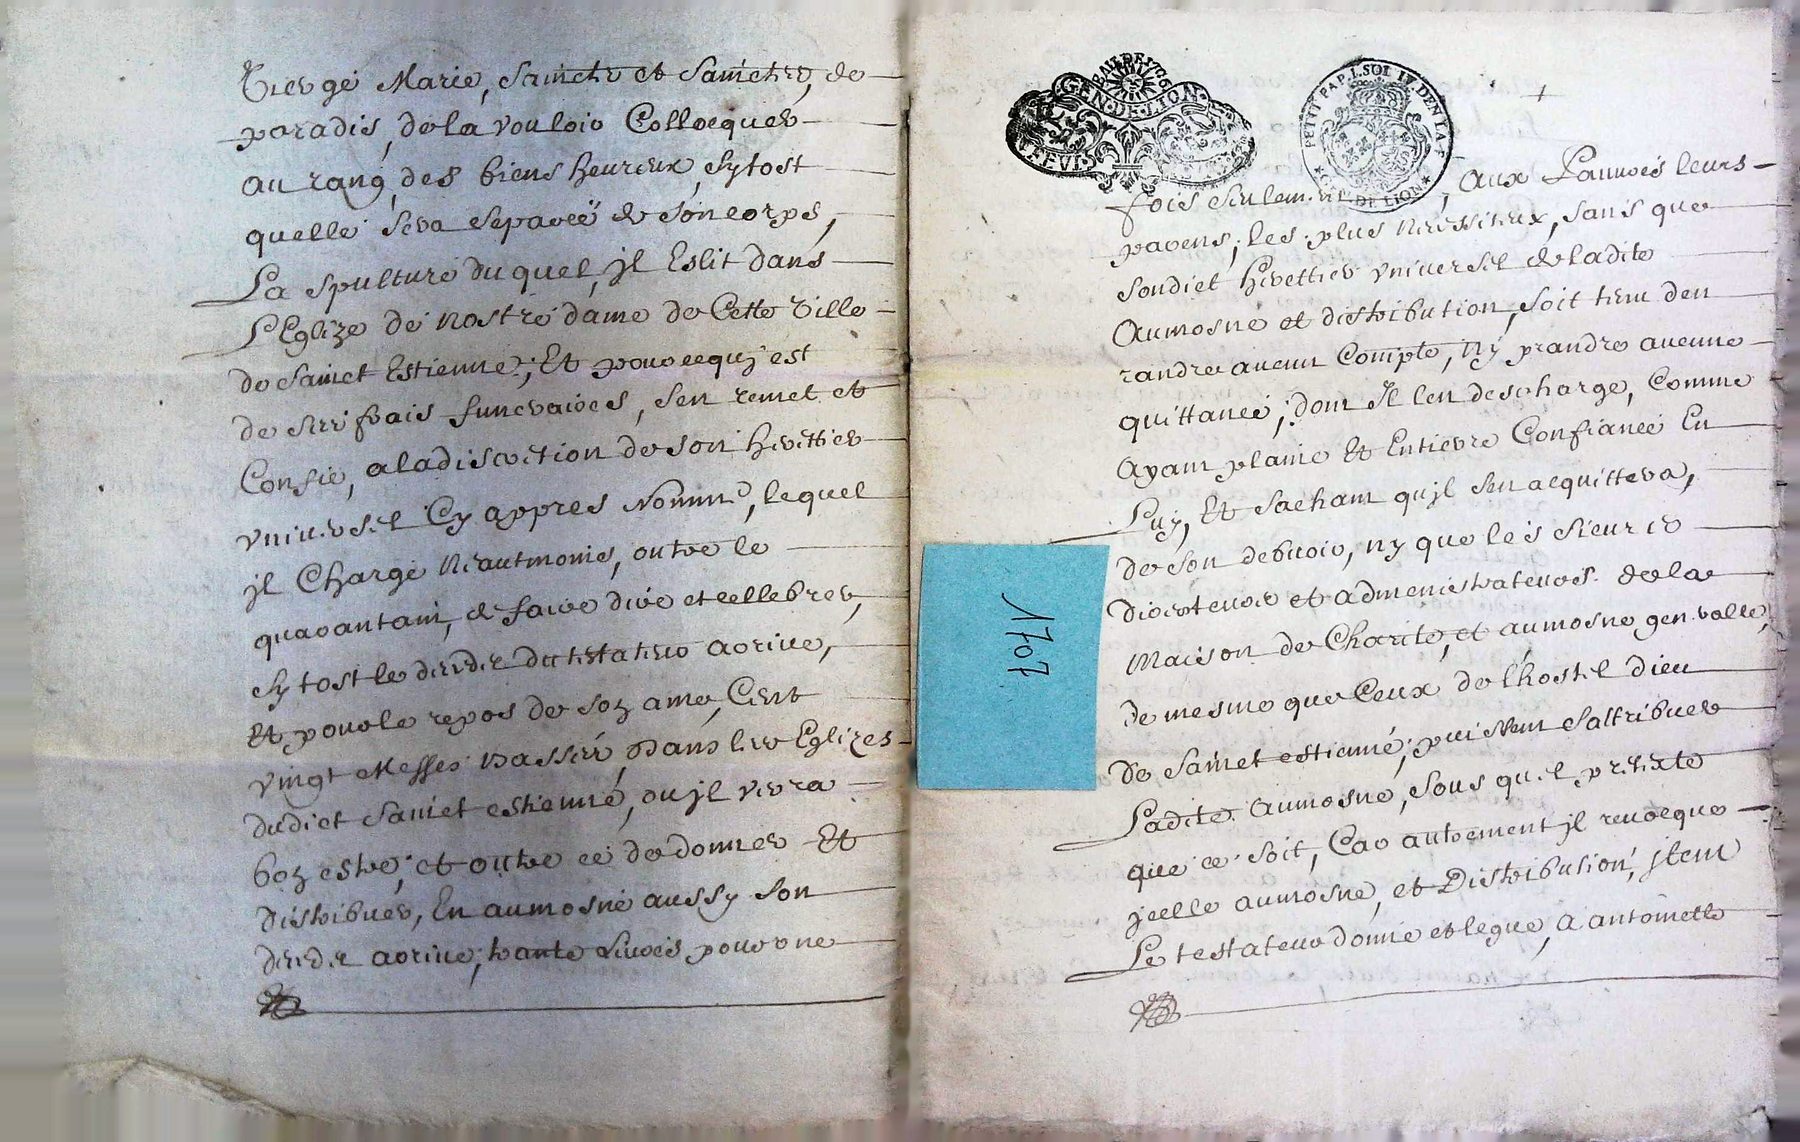 Vierge Marie, Saincts et Sainctes, de
paradis, de la vouloir Collocquer
au rang des biens heureux, sy tost
quelle sera separeë de son corps,
La spulture du quel, jl Eslit dans
L'Eglize de nostre dame de Cette Ville
de Sainct Estienne; Et pour cequj est
de ses frais funeraires, sen remet et
Confie, a la discretion de son herittier
vniversel Cy appres Nommé, lequel
jl Charge neautmoins, outre le
quarantain, de faire dire et cellebrer,
sy tost le deceds du testateur aorive,
Et pour le repos de son ame, Cent
vingt Messes basses, Dans les Eglizes
dudict Sainct estienne, ou jl verra
bon estre; et outre ce de donner Et
distribuer, En aumosne aussy son
deceds aorive; trante Livres pour vne
1707
GEN·DE·LION·
PETIT PAP. 1. SOL IV. DEN LA F.
G. DE LION
fois seulement, aux Pauures leurs
parens, les plus necessiteux, sans que
sondict herettier vniversel de ladite
Aumosne et distribution, soit tenu den
randre aucun Compte, Ny prandre aucune
quittance; dont Il len descharge, Comme
ayant plaine Et Entiere Confiance En
Luy, Et Sachant qujl sen acquittera,
de son debuoir, ny que les sieurs
directeurs et admenistrateurs de la
Maison de Charité, et aumosne generalle,
de mesme que Ceux de lhostel dieu
de Sainct estienne, puissent sattribuer
Ladite aumosne, sous quel pretexte
que ce soit, Car autrement jl reuocque
jcelle aumosne, et Distribution, jtem
Le testateur donne et legue, a antoinette